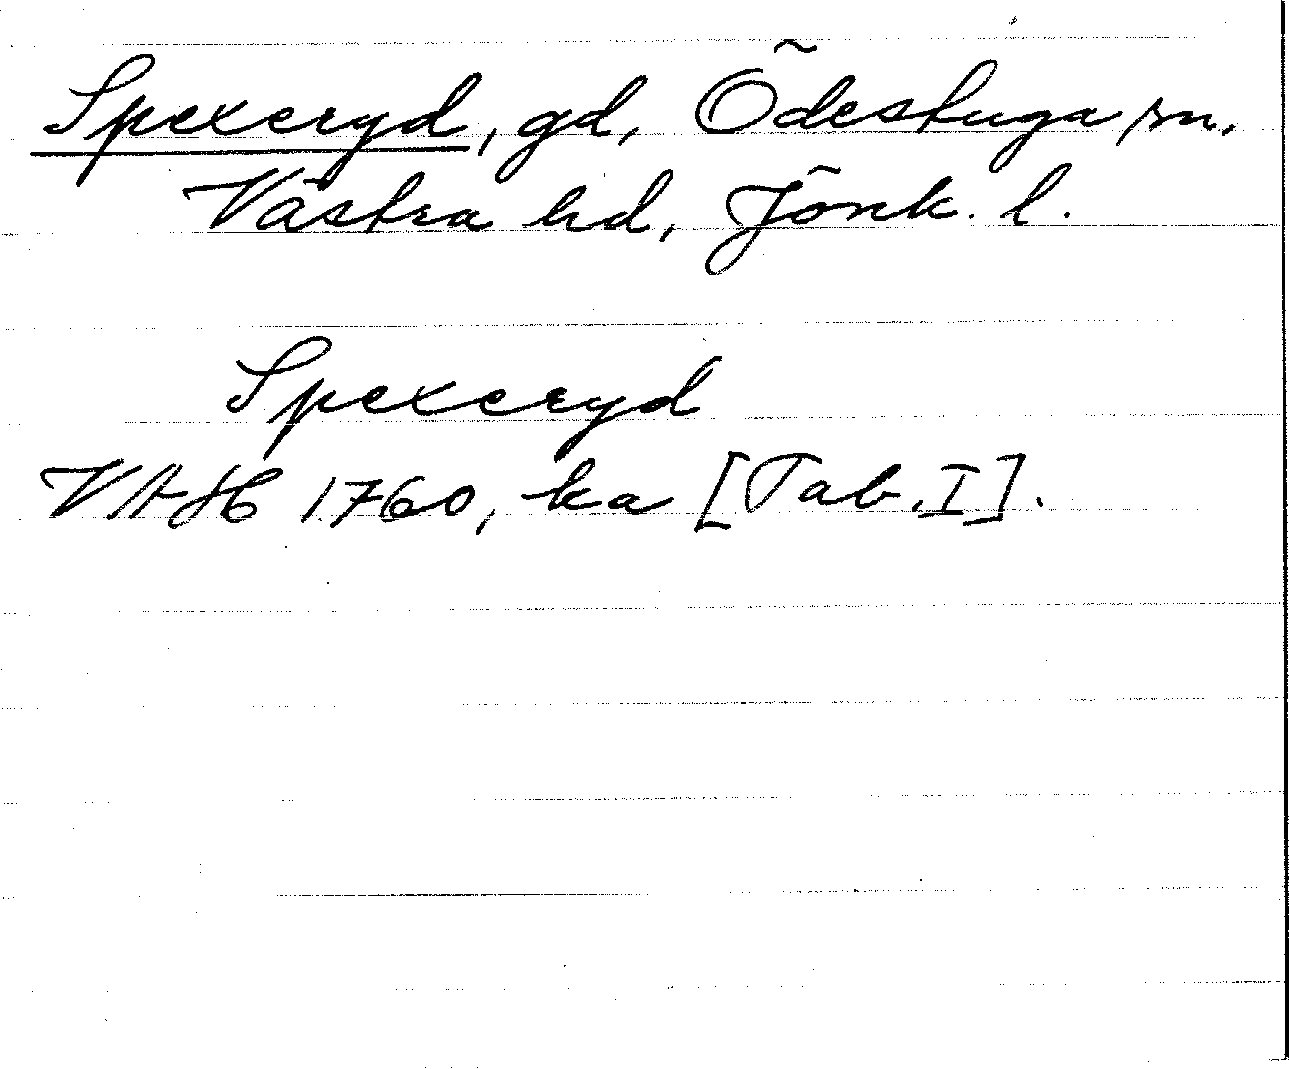 Spexeryd, gd, Ödestuga sn,
Västra hd, Jönk. l.
Spexeryd
VAH 1760, ka [Tab. I].